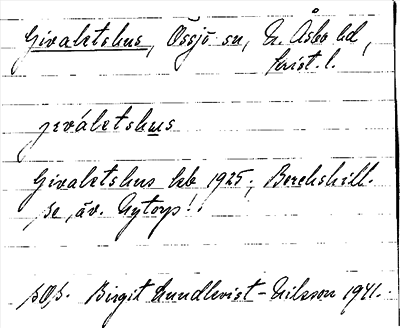 Givaletshus, Össjö sn, N. Åsbo hd,
Krist. l.
jiválətshus
Givaletshus kb 1925, Borckshill.
se, äv. Nytorp!
sOs. Birgit Lundkvist-Nilsson 1941.